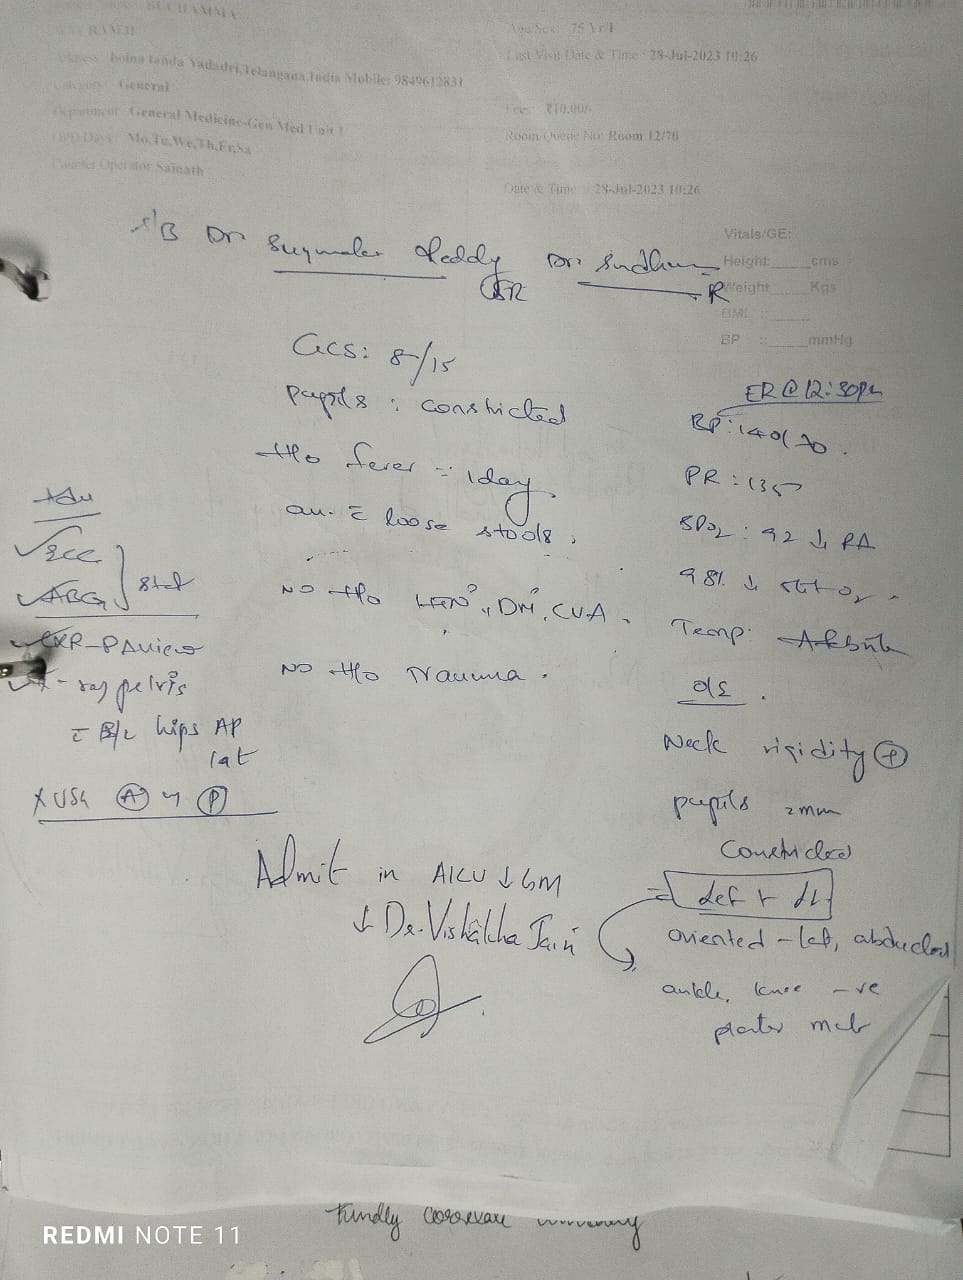 BUCHAMMA
RAMJI
Age/Sex 75 Yr/F
Last Visit Date & Time 28-Jul-2023 10:26
boina tanda Yadadri,Telangana,India Mobile: 9849612831
General
Fee: ₹10.00/-
Department General Medicine-Gen Med Unit 1
Room/Queue No: Room 12/76
OPD Days Mo,Tu,We,Th,Fr,Sa
Counter Operator Sainath
Date & Time 28-Jul-2023 10:26
S/B Dr Reddy Dr
Vitals/GE:
Height cms
Weight Kgs
BMI :
BP : mmHg
GCS: 8/15
Pupils : constricted
H/o fever :- 1 day
loose stools,
NO H/o HTN, DM, CVA.
NO H/o Trauma.
Adv
ECG
ABG
stat
CXR-PA view
X-ray pelvis
c B/L hips AP
lat
x USG A P
ER @ 12:30pm
BP: 140/70.
PR: 135
SPO2: 92 ↓ RA
98% ↓
Temp: Afebrile
O/E.
Neck rigidity +
pupils 2mm
Constricted
def
oriented - left, abducted
ankle, knee -ve
Admit in AICU ↓ GM
↓ Dr. Vishakha Jain
Kindly
REDMI NOTE 11